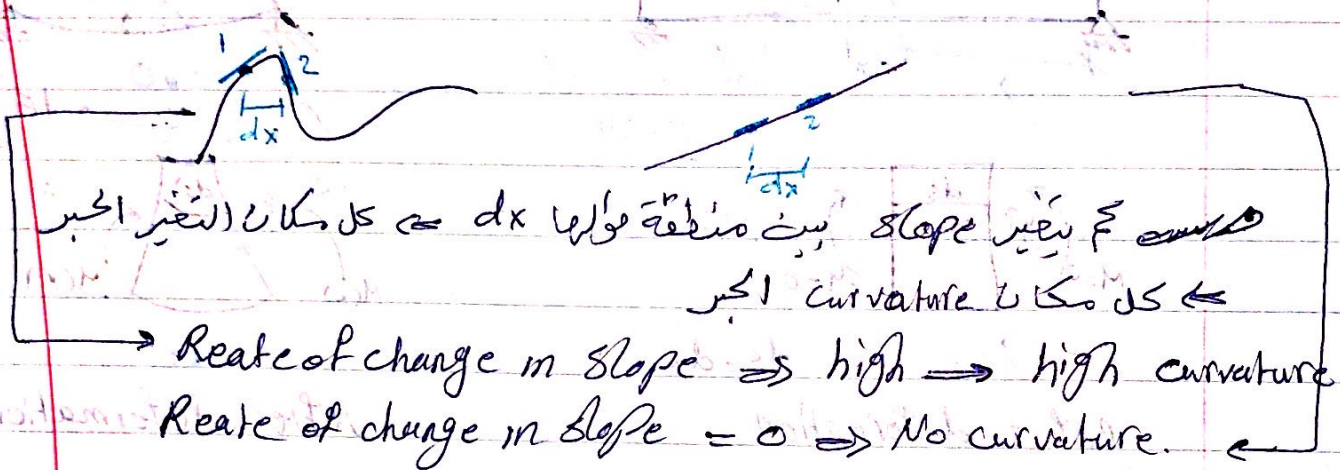 1 2
dx
1 2
dx
كم بتغير slope بين منطقة طولها dx ⇐ كل مكان التغير اكبر
⇐ كل مكان curvature اكبر
→ Reate of change in slope ⇒ high ⟹ high curvature
Reate of change in slope = 0 ⇒ No curvature.